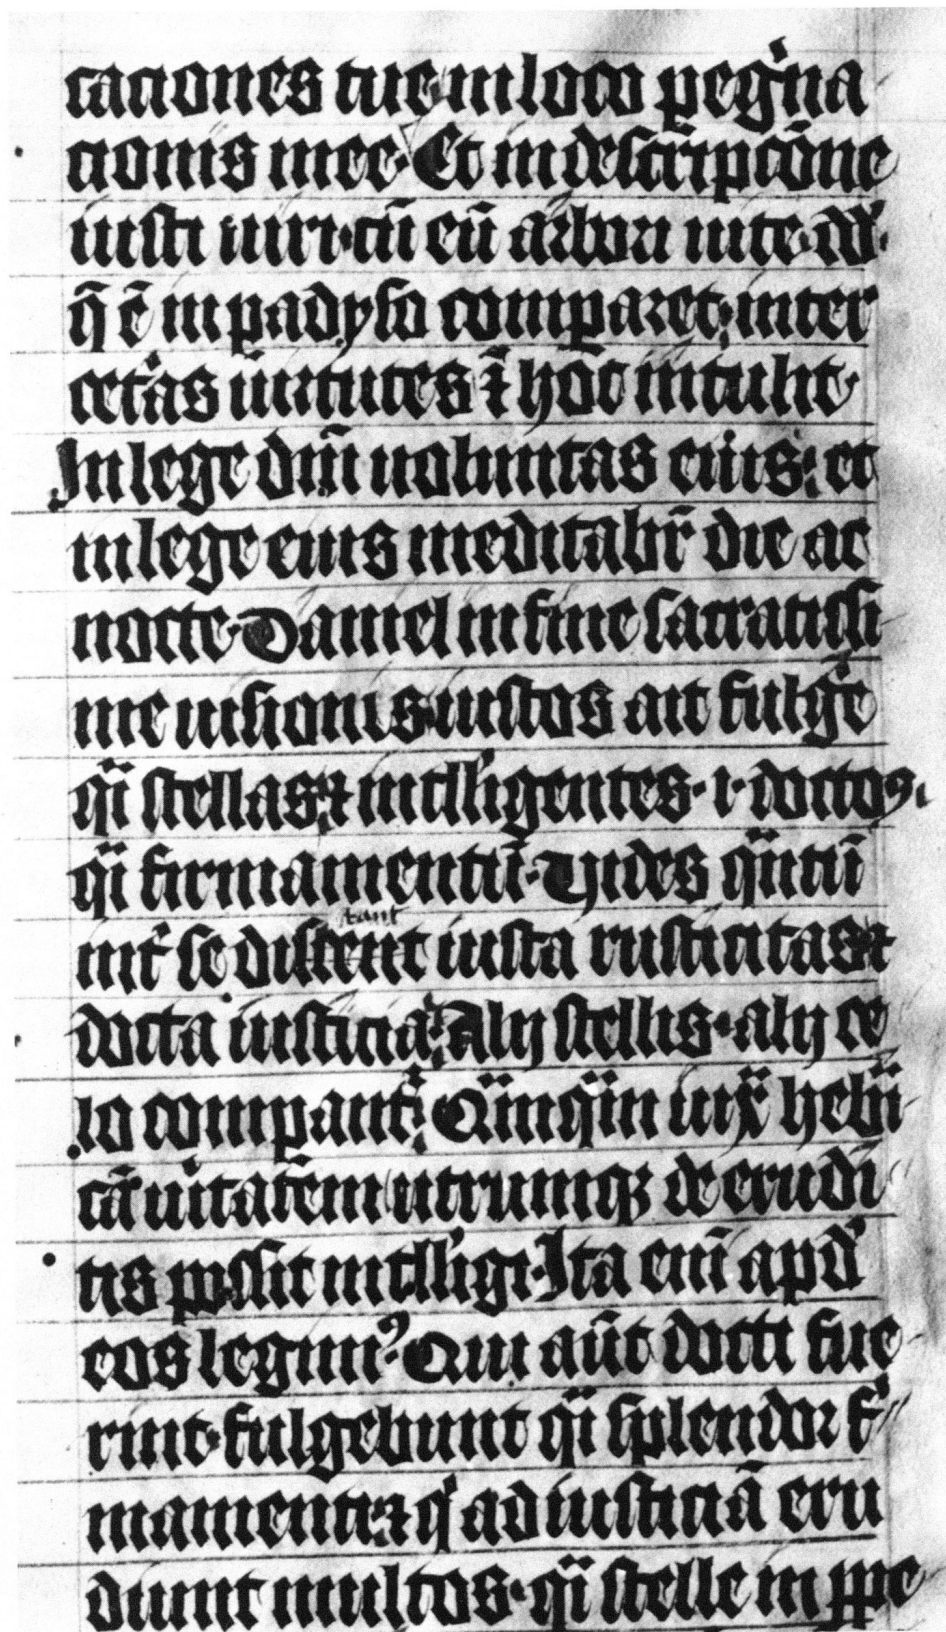 caciones tue in loco pegͥna
cionis mee. Et in descripcōne
iusti uiri. cū eū arbori uite. 
q̄ ē in padyso comparet. inter
cetas uirtutes ⁊ hoc intulit.
In lege dn̄i uoluntas eius. et
in lege eius meditabr̄ die ac
nocte. Daniel in fine sacratissi
me uisionis iustos ait fulge
qͣi stellas. ⁊ intlligentes .i. doctoꝰ.
qͣi firmamentū. Uides qͣntū
int̄ se distent iusta rusticitas ⁊
tant
docta iusticia. Alij stellis. alij ce
lo compant. Qͣnqͣm iux̄ hebͣi
cā uitatem utrumqꝫ de erudi
tis possit intlligi. Ita eni apd̄
eos legimꝰ. Qui aut̄ docti fue
rint. fulgebunt qͣi splendor fͥ
mamenti. ⁊ qͥ ad iusticiā eru
diunt multos. qͣi stelle in ꝑpe